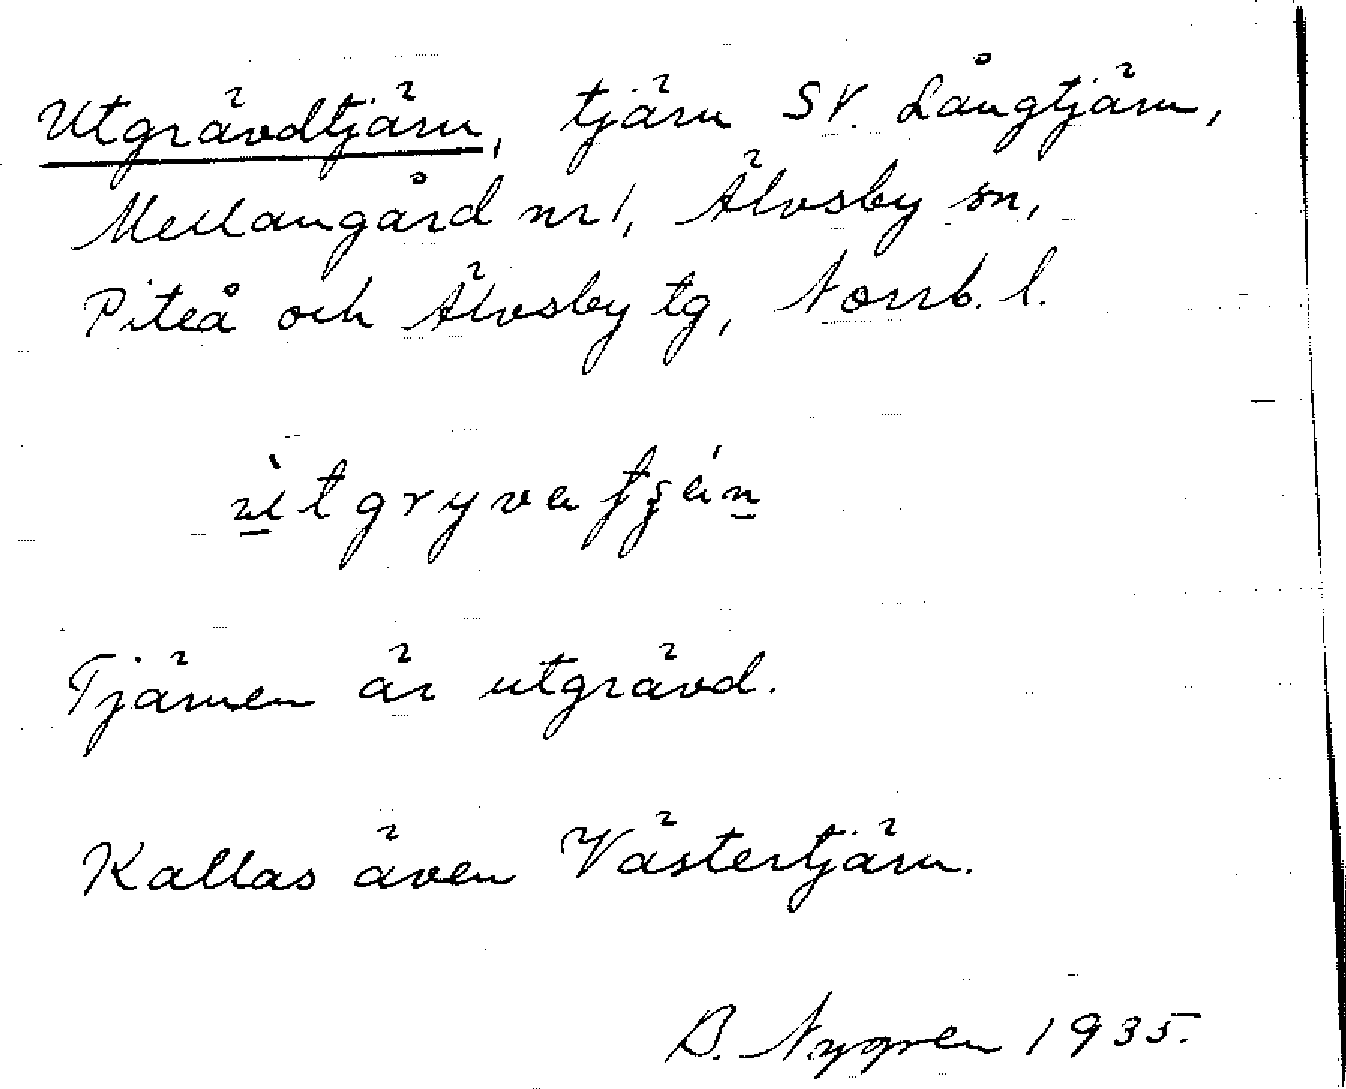 Utgrävdtjärn, tjärn SV. Långtjärn,
Mellangård nr 1, Älvsby sn,
Piteå och Älvsby tg, Norrb. l.
ùtgryvatján
Tjärnen är utgrävd.
Kallas även Västertjärn.
B. Nygren 1935.